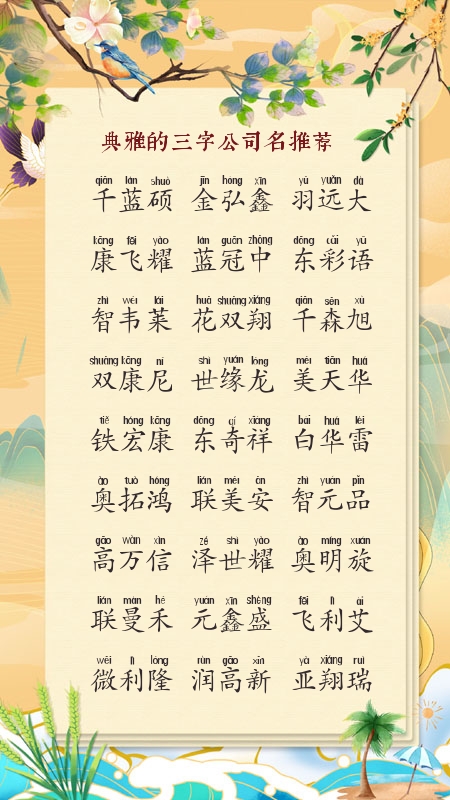 典雅的三字公司名推荐
qiān lán shuò jīn hóng xīn yǔ yuǎn dà
千蓝硕 金弘鑫 羽远大
kāng fēi yào lán guān zhōng dōng cǎi yǔ
康飞耀 蓝冠中 东彩语
zhì wéi lái huā shuāng xiáng qiān sēn xù
智韦莱 花双翔 千森旭
shuāng kāng ní shì yuán lóng měi tiān huá
双康尼 世缘龙 美天华
tiě hóng kāng dōng qí xiáng bái huá léi
铁宏康 东奇祥 白华雷
ào tuò hóng lián měi ān zhì yuán pǐn
奥拓鸿 联美安 智元品
gāo wàn xìn zé shì yào ào míng xuán
高万信 泽世耀 奥明旋
lián màn hé yuán xīn shèng fēi lì ài
联曼禾 元鑫盛 飞利艾
wēi lì lóng rùn gāo xīn yà xiáng ruì
微利隆 润高新 亚翔瑞